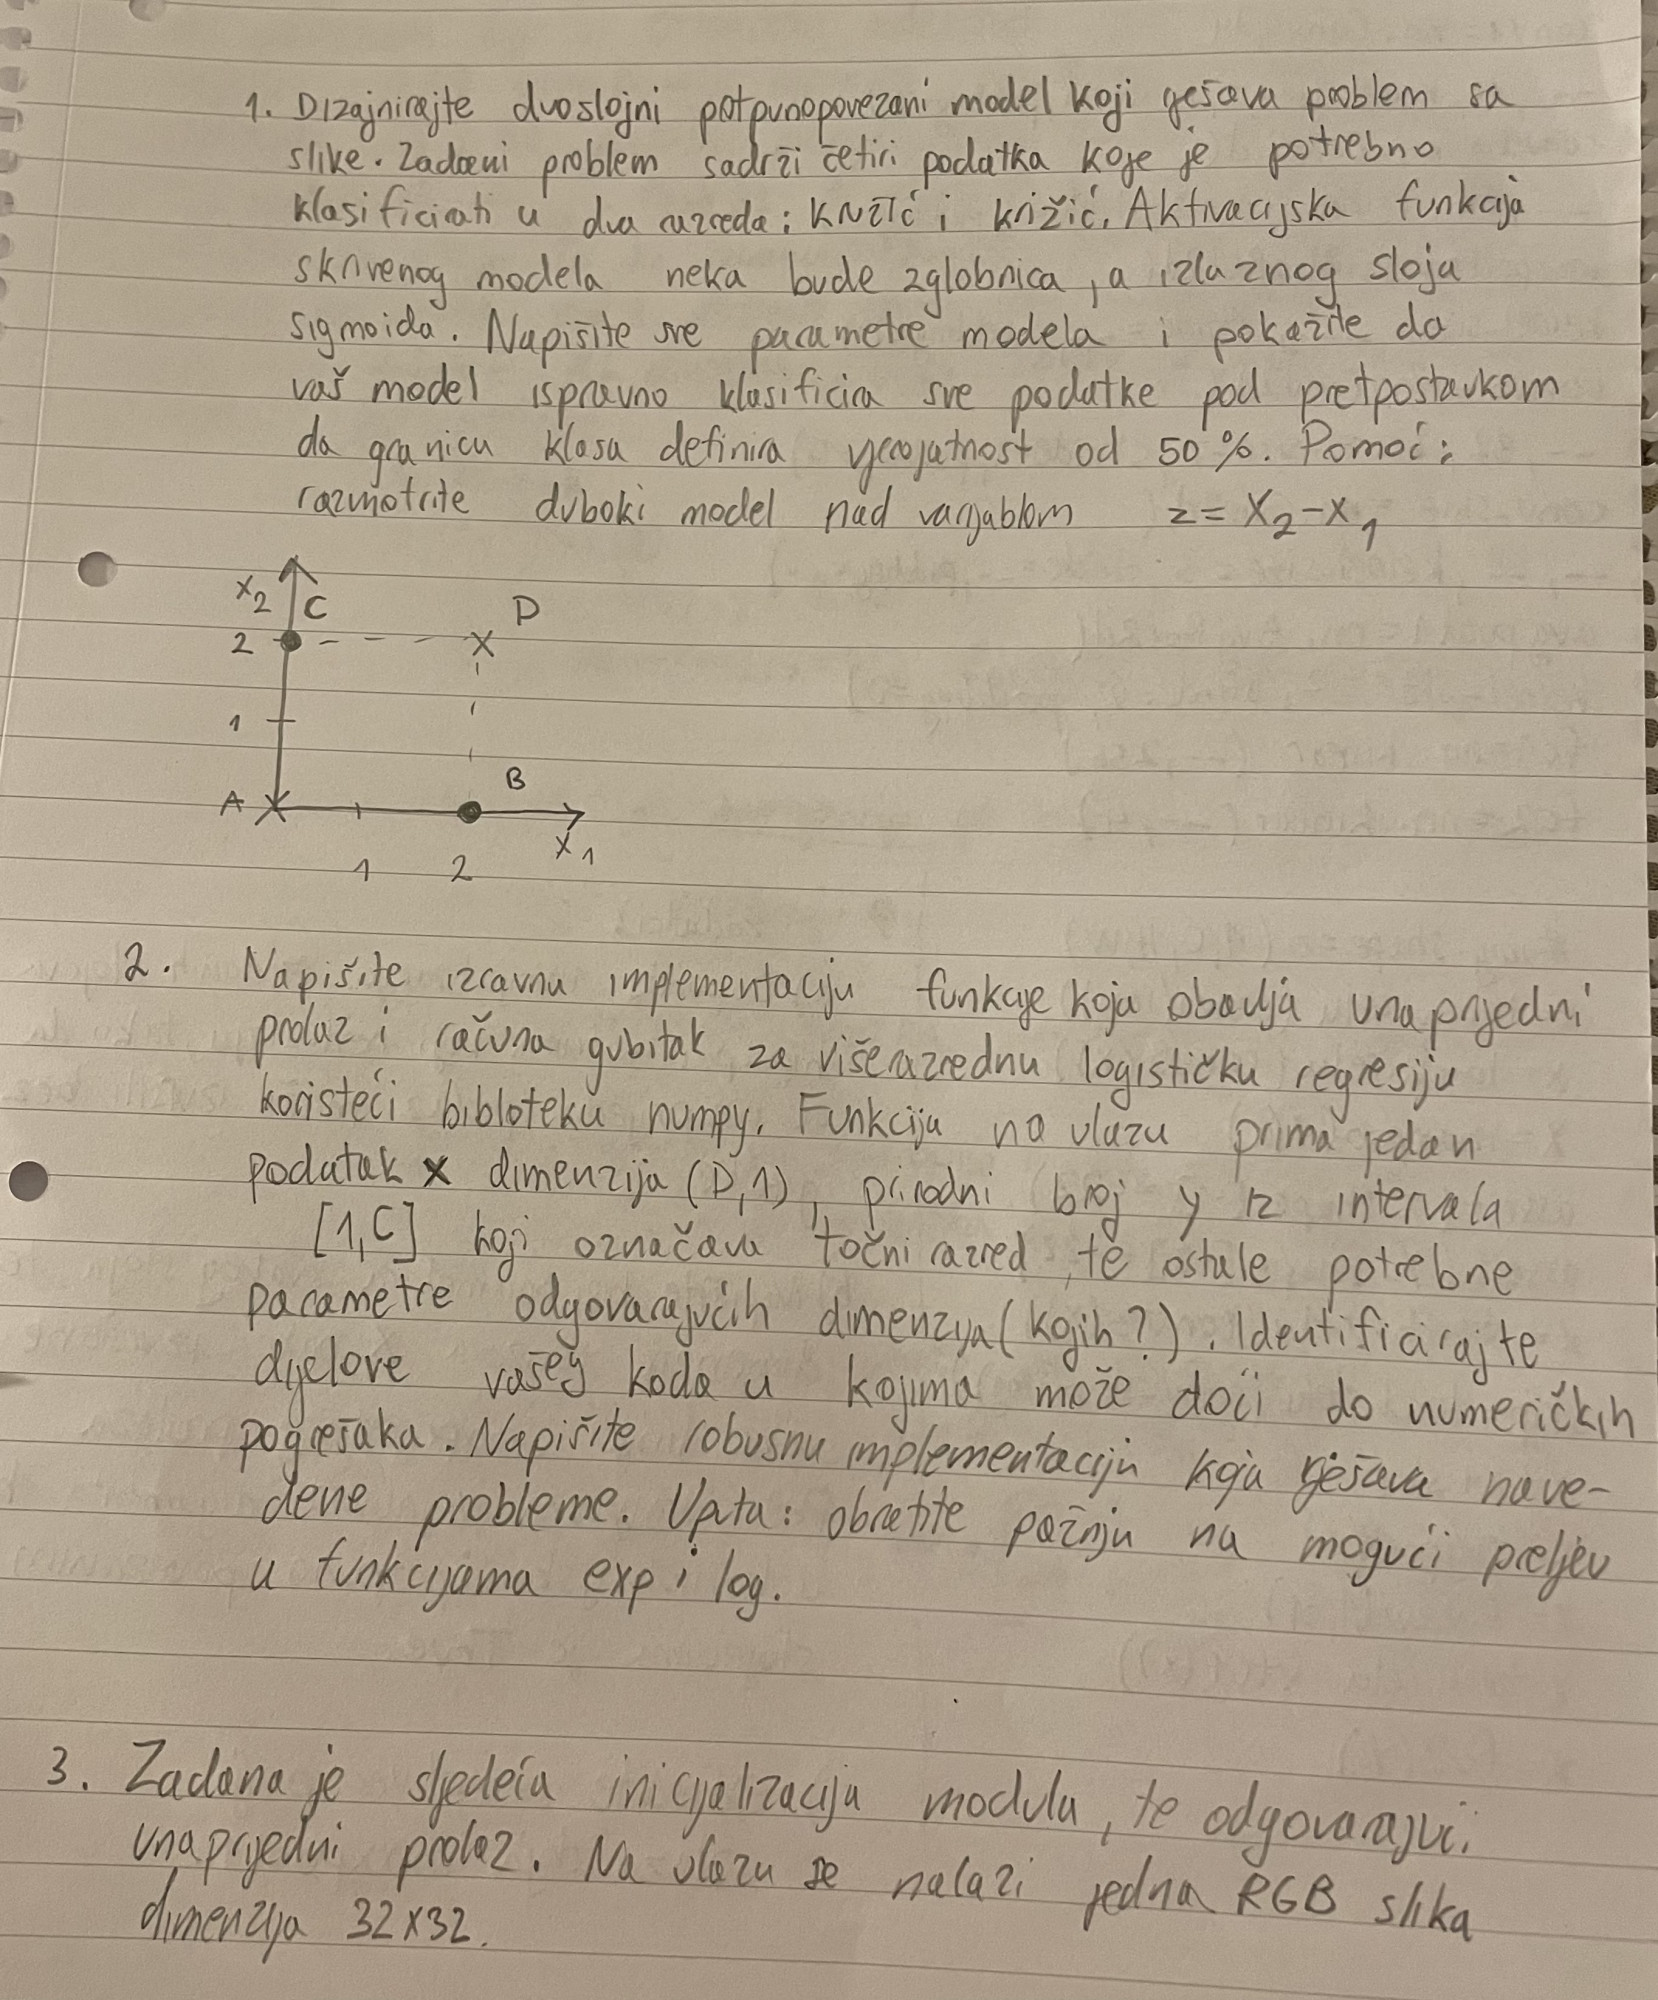 1. Dizajnirajte dvoslojni potpunopovezani model koji rješava problem sa
slike. Zadani problem sadrži četiri podatka koje je potrebno
klasificirati u dva razreda: kružić i križić. Aktivacijska funkcija
skrivenog modela neka bude zglobnica, a izlaznog sloja
sigmoida. Napišite sve parametre modela i pokažite da
vaš model ispravno klasificira sve podatke pod pretpostavkom
da granicu klasa definira vjerojatnost od 50%. Pomoć:
razmotrite duboki model nad varijablom z = x₂-x₁
x₂ C D
2
1
A B
x₁
1 2
2. Napišite izravnu implementaciju funkcije koja obavlja unaprijedni
prolaz i računa gubitak za višerazrednu logističku regresiju
koristeći bibloteku numpy. Funkcija na ulazu prima jedan
podatak x dimenzija (D,1), prirodni broj y iz intervala
[1,C] koji označava točni razred, te ostale potrebne
parametre odgovarajućih dimenzija (kojih?). Identificirajte
dijelove vašeg koda u kojima može doći do numeričkih
pogrešaka. Napišite robusnu implementaciju koja rješava nave-
dene probleme. Uputa: obratite pažnju na mogući preljev
u funkcijama exp i log.
3. Zadana je sljedeća inicijalizacija modula, te odgovarajući
unaprijedni prolaz. Na ulazu se nalazi jedna RGB slika
dimenzija 32x32.